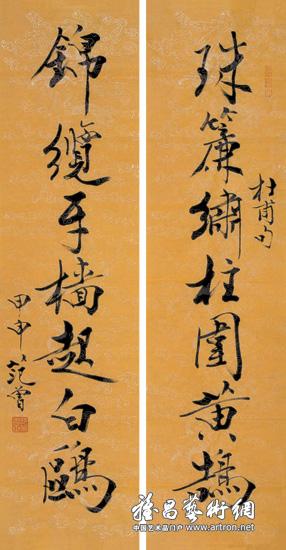 珠簾繡柱圍黃鵠
杜甫句
錦纜牙檣起白鷗
甲申 范曾
雅昌藝術網
中国艺术品门户 www.artron.net